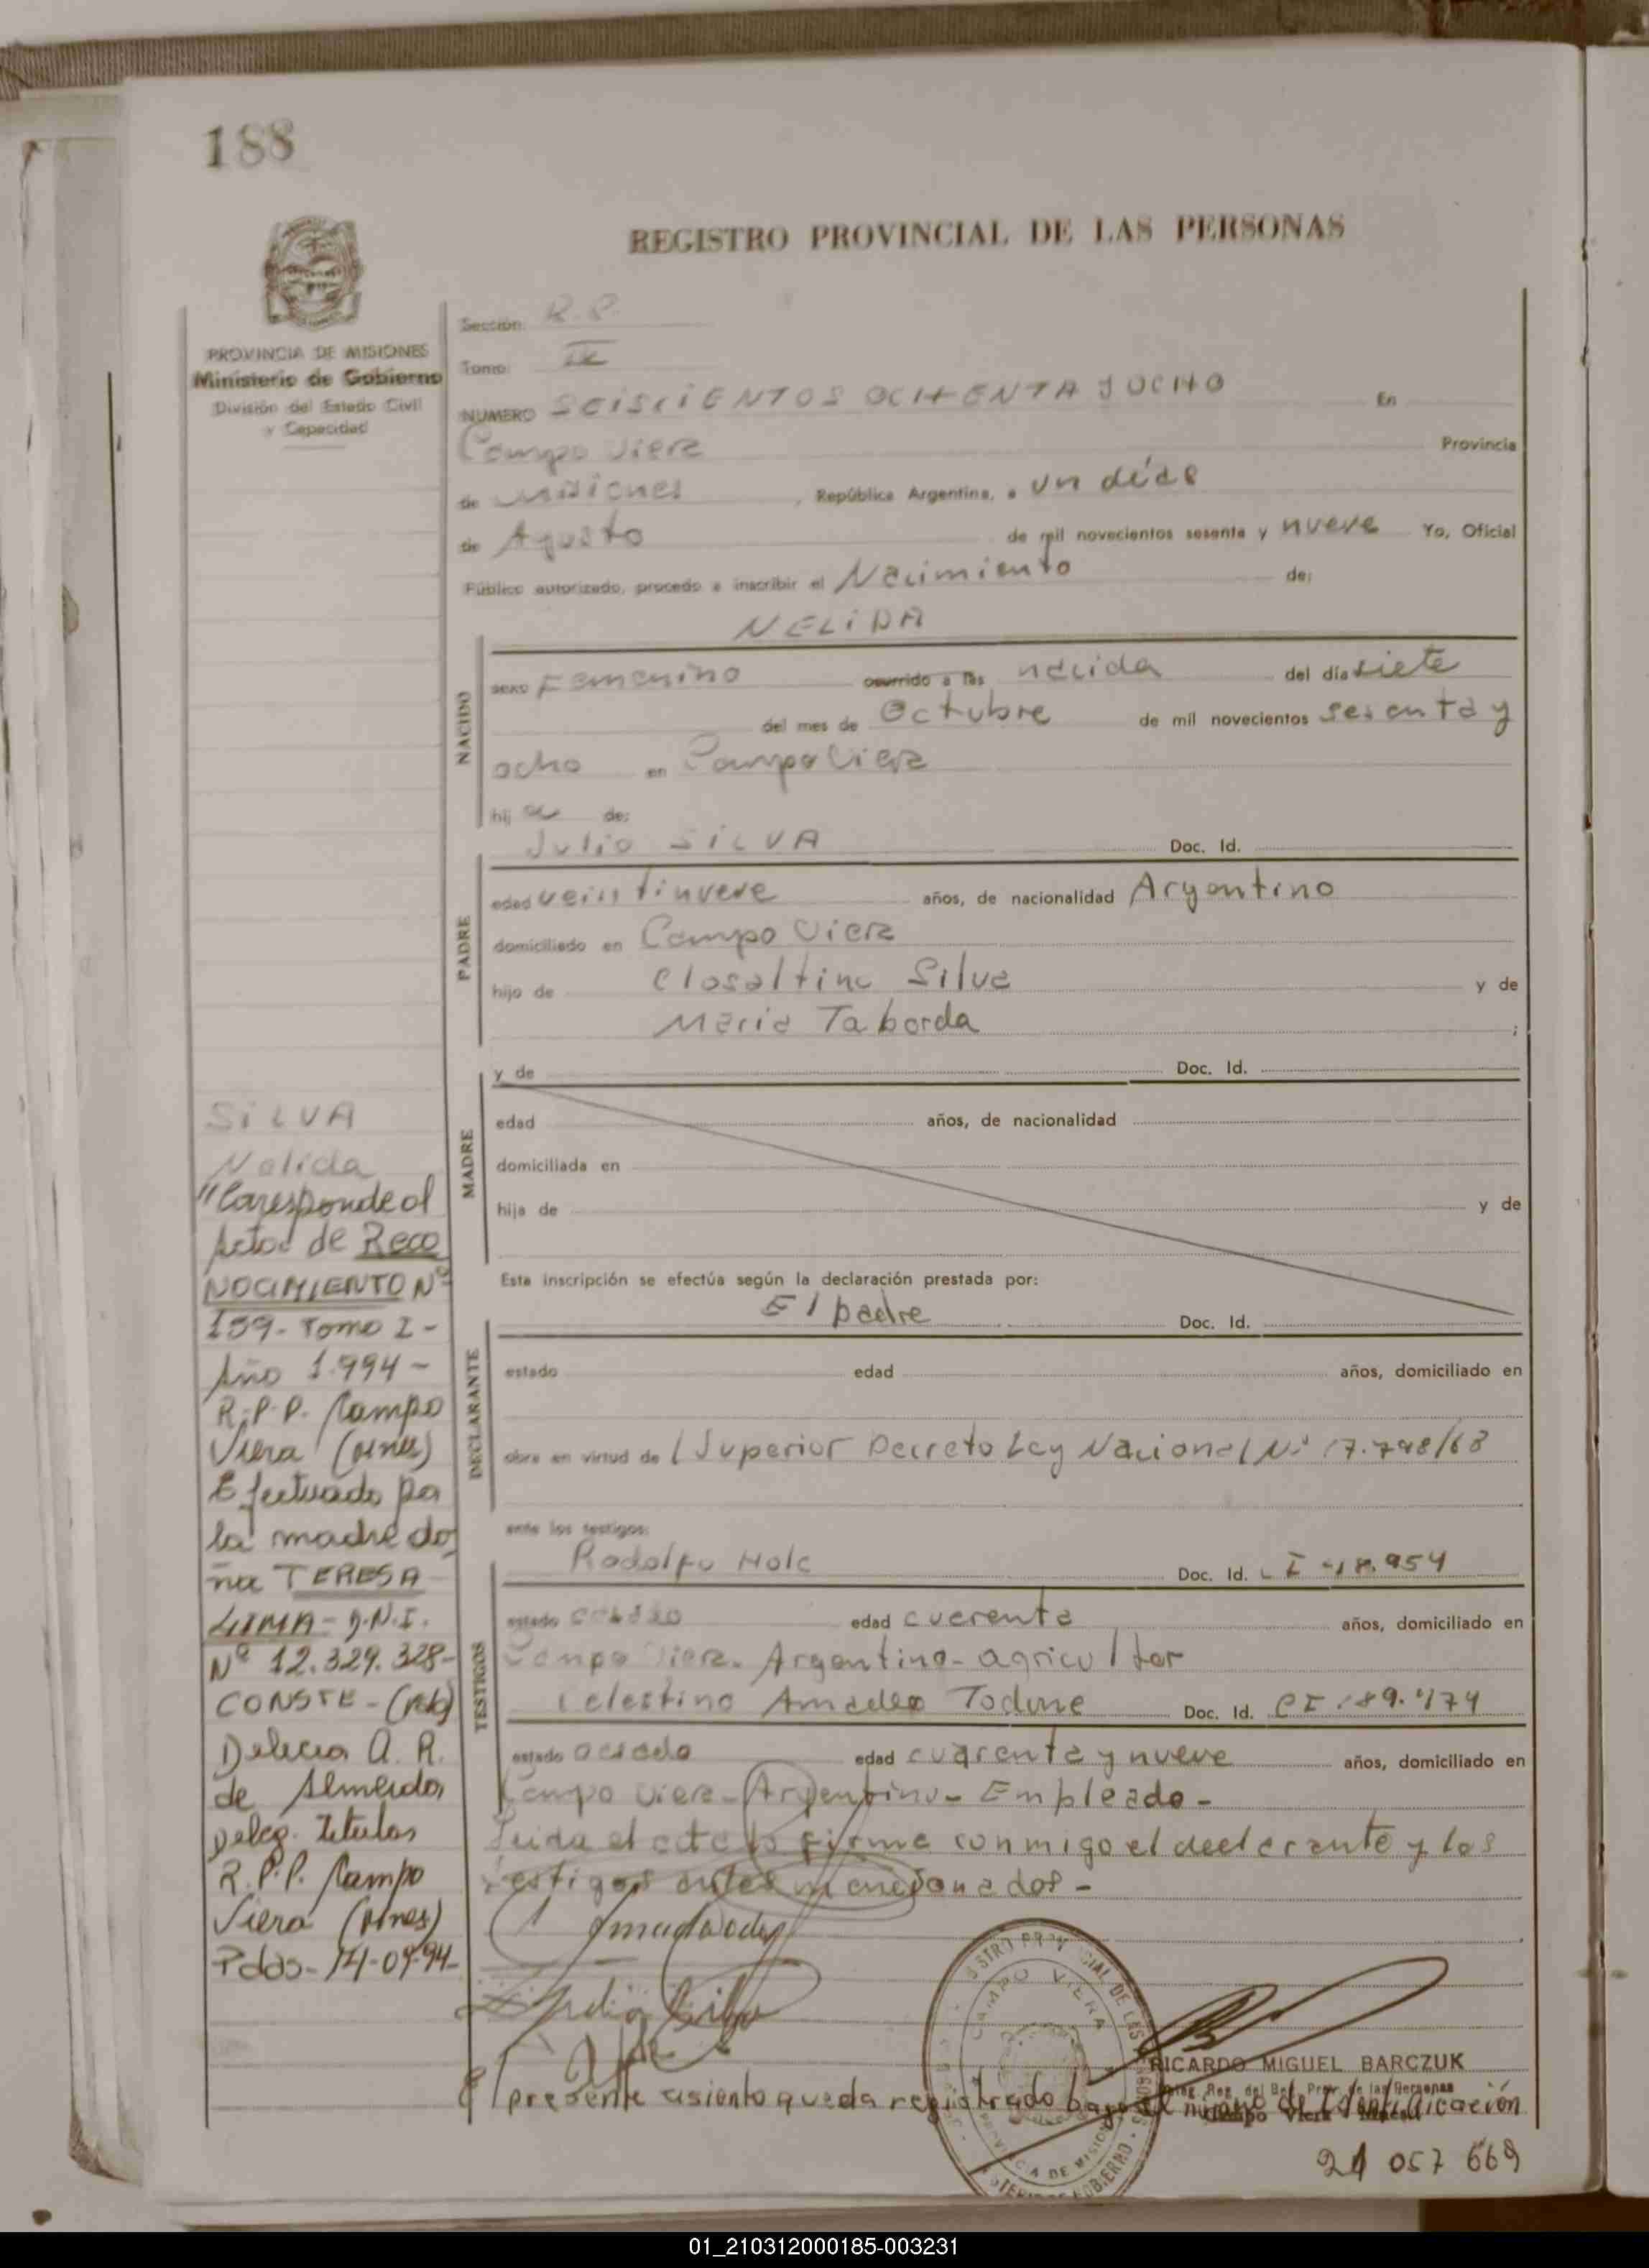 188
REGISTRO PROVINCIAL DE LAS PERSONAS
PROVINCIA DE MISIONES
Ministerio de Gobierno
División del Estado Civil
y Capacidad
Sección: R. P.
Tomo:
NUMERO SEISCIENTOS OCHENTA Y OCHO En
Campo Viera Provincia
de Misiones, República Argentina, a un días
de Agosto de mil novecientos sesenta y nueve Yo, Oficial
Público autorizado, procedo a inscribir el Nacimiento de:
NELIDA
NACIDO
sexo Femenino ocurrido a las nacida del día siete
del mes de Octubre de mil novecientos sesenta y
ocho en Campo Viera
hij a de:
Julio SILVA Doc. Id.
PADRE
edad veintinueve años, de nacionalidad Argentino
domiciliado en Campo Viera
hijo de Closaltino Silva y de
Maria Taborda ;
MADRE
y de Doc. Id.
edad años, de nacionalidad
domiciliada en
hija de y de
Esta inscripción se efectúa según la declaración prestada por:
El padre Doc. Id.
DECLARANTE
estado edad años, domiciliado en
obra en virtud de l Superior Decreto Ley Nacional Nº 17.798/68
ante los testigos:
Rodolfo Holc Doc. Id. 18.954
TESTIGOS
estado casado edad cuarenta años, domiciliado en
Campo Viera. Argentino - agricultor
Celestino Amadeo Todone Doc. Id. CI 189.474
estado casado edad cuarenta y nueve años, domiciliado en
Campo Viera - Argentino - Empleado -
Leida el acta la firma conmigo el declarante y los
testigos antes mencionados -
SILVA
Nelida
"Corresponde al
Acta de Reco
NOCIMIENTO Nº
159 - Tomo I -
Año 1.994 -
R.P.P. Campo
Viera (Mnes)
Efectuado por
la madre do
ña TERESA
LIMA - D.N.I.
Nº 12.329.328 -
CONSTE -
Delicia A. R.
de Almeida
Deleg. Titular
R.P.P. Campo
Viera (Mnes)
Pdas - 14-09-94 -
CAMPO VIERA
RICARDO MIGUEL BARCZUK
El presente asiento queda registrado bajo el numero de identificación
21 057 669
01_210312000185-003231